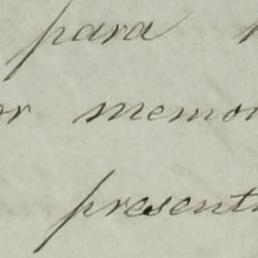 para
or memo
present